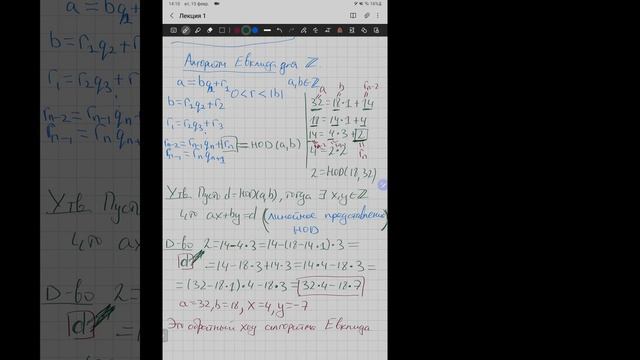 14:10 вт, 13 февр.
16%
Лекция 1
Алгоритм Евклида для ℤ.
a=bq₁+r₁ a,b∈ℤ
0<r<|b|
b=r₁q₂+r₂
r₁=r₂q₃+r₃
rₙ₋₂=rₙ₋₁qₙ+rₙ=НОД(a,b)
rₙ₋₁=rₙqₙ₊₁
a b rₙ₋₂
32=18·1+14
18=14·1+4
14=4·3+2
4=2·2 rₙ
2=НОД(18,32)
Утв. Пусть d=НОД(a,b), тогда ∃ x,y∈ℤ
что ax+by=d (линейное представление
НОД
D-во 2=14-4·3=14-(18-14·1)·3=
d
=14-18·3+14·3=14·4-18·3=
=(32-18·1)·4-18·3=32·4-18·7
a=32, b=18, x=4, y=-7
Это обратный ход алгоритма Евклида